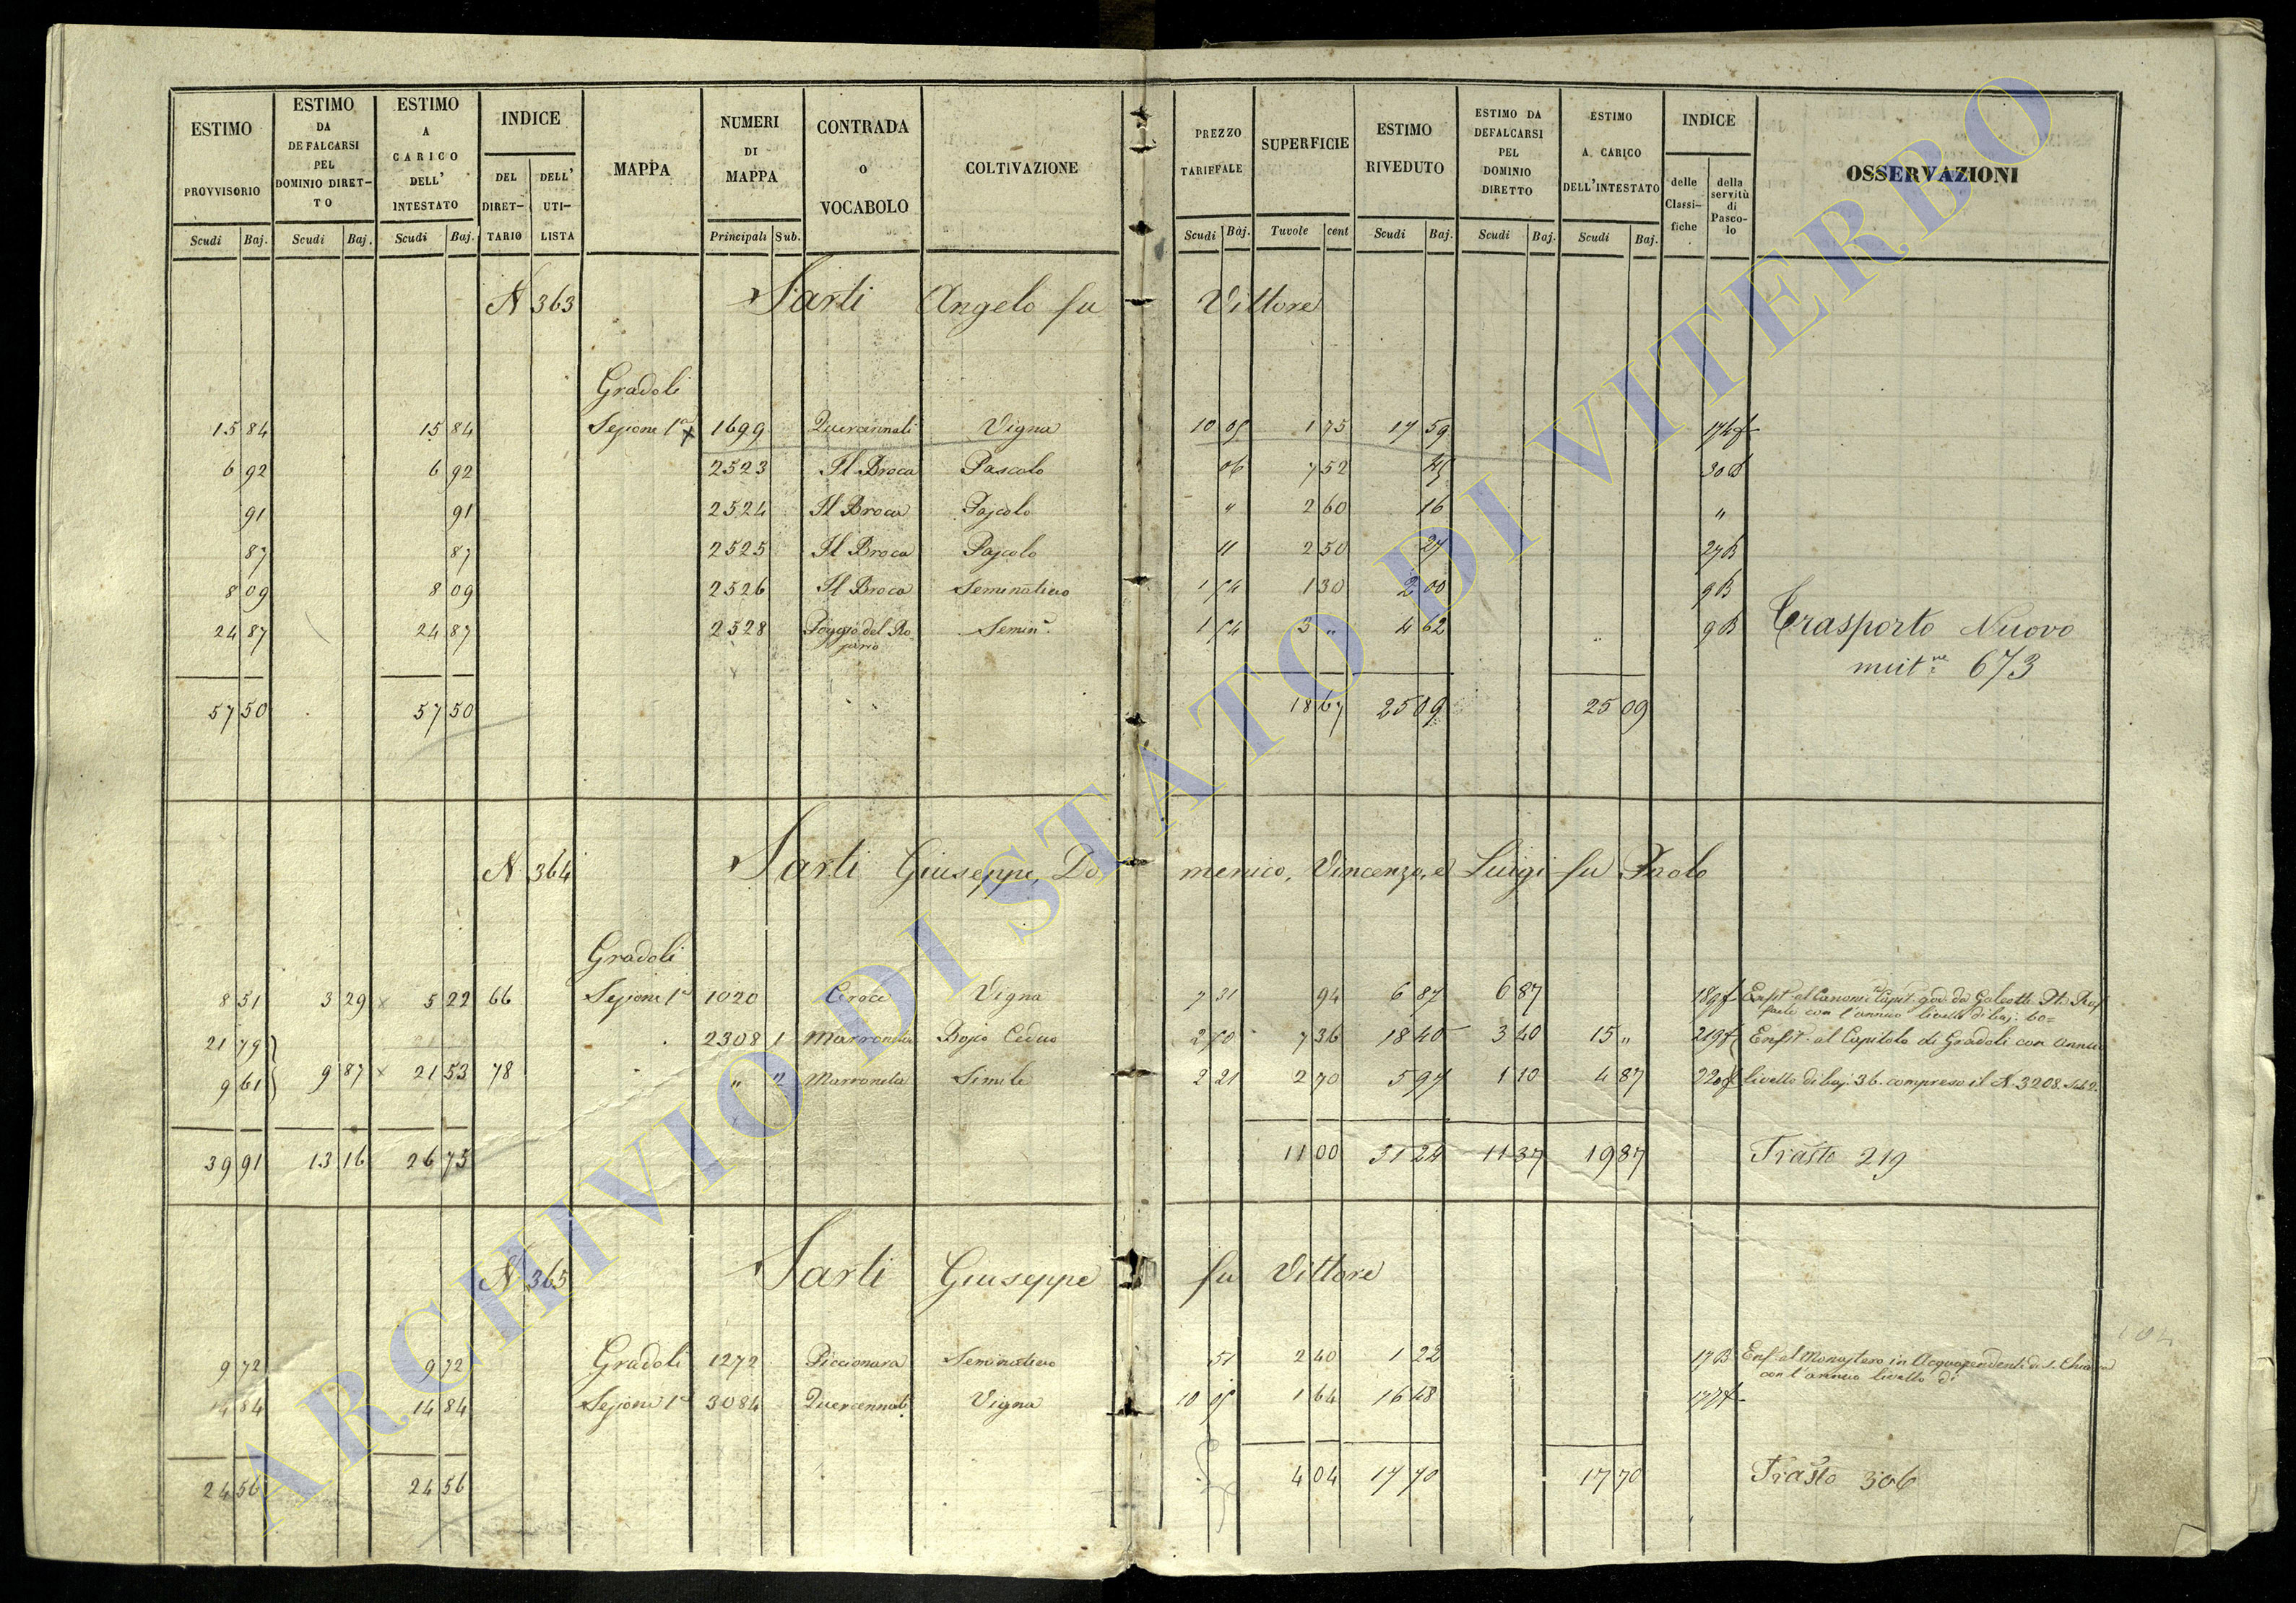 ESTIMO PROVVISORIO Scudi Baj.
ESTIMO DA DEFALCARSI PEL DOMINIO DIRET-TO Scudi Baj.
ESTIMO A CARICO DELL' INTESTATO Scudi Baj.
INDICE DEL DIRET-TARIO DELL' UTI-LISTA
MAPPA
NUMERI DI MAPPA Principali Sub.
CONTRADA o VOCABOLO
COLTIVAZIONE
PREZZO TARIFFALE Scudi Baj.
SUPERFICIE Tavole cent
ESTIMO RIVEDUTO Scudi Baj.
ESTIMO DA DEFALCARSI PEL DOMINIO DIRETTO Scudi Baj.
ESTIMO A CARICO DELL'INTESTATO Scudi Baj.
INDICE delle Classi-fiche della servitù di Pasco-lo
OSSERVAZIONI
N 363 Sarti Angelo fu Vittore
Gradoli
15 84 15 84 Sezione 1a 1699 Vigna 10 05 1 75 17 59
6 92 6 92 2523 Il Broca Pascolo 06 7 52 45 30 B
91 91 2524 Il Broca Pascolo " 2 60 16 "
87 87 2525 Il Broca Pascolo 11 2 50 27 27 B
8 09 8 09 2526 Il Broca Seminativo 1 54 1 30 2 00 9 B
24 87 24 87 2528 Poggio del Ro Semin.o 1 54 3 " 4 62 " 9 B Trasporto Nuovo
mut.ne 673
57 50 57 50 18 67 25 09 25 09
N 364 Sarti Giuseppe, Domenico, Vincenzo, e Luigi fu Paolo
Gradoli
8 31 3 29 x 5 22 66 Sezione 1a 1020 Croce Vigna 7 31 94 6 87 6 87 con l'annuo livello di baj. 60=
21 79 2308 1 Marroneta Bosco Ceduo 2 50 7 36 18 40 3 40 15 " Enf.t al Capitolo di Gradoli con annuo
9 61 9 87 x 21 53 78 " 2 Marroneta Simile 2 21 2 70 5 97 1 10 4 87 livello di baj. 36. compreso il N. 3208. Sub 2.
39 91 13 16 26 75 11 00 31 24 11 37 19 87 Trasto 219
N 365 Sarti Giuseppe fu Vittore
9 72 9 72 Gradoli 1272 Piccionara Seminativo 51 2 40 1 22 17 B Enf. al Monastero in Acquapendente di S. Chiara
con l'annuo livello di
14 84 14 84 Sezione 1a 3084 Vigna 10 05 1 64 16 48
24 56 24 56 4 04 17 70 17 70 Trasto 306
ARCHIVIO DI STATO DI VITERBO